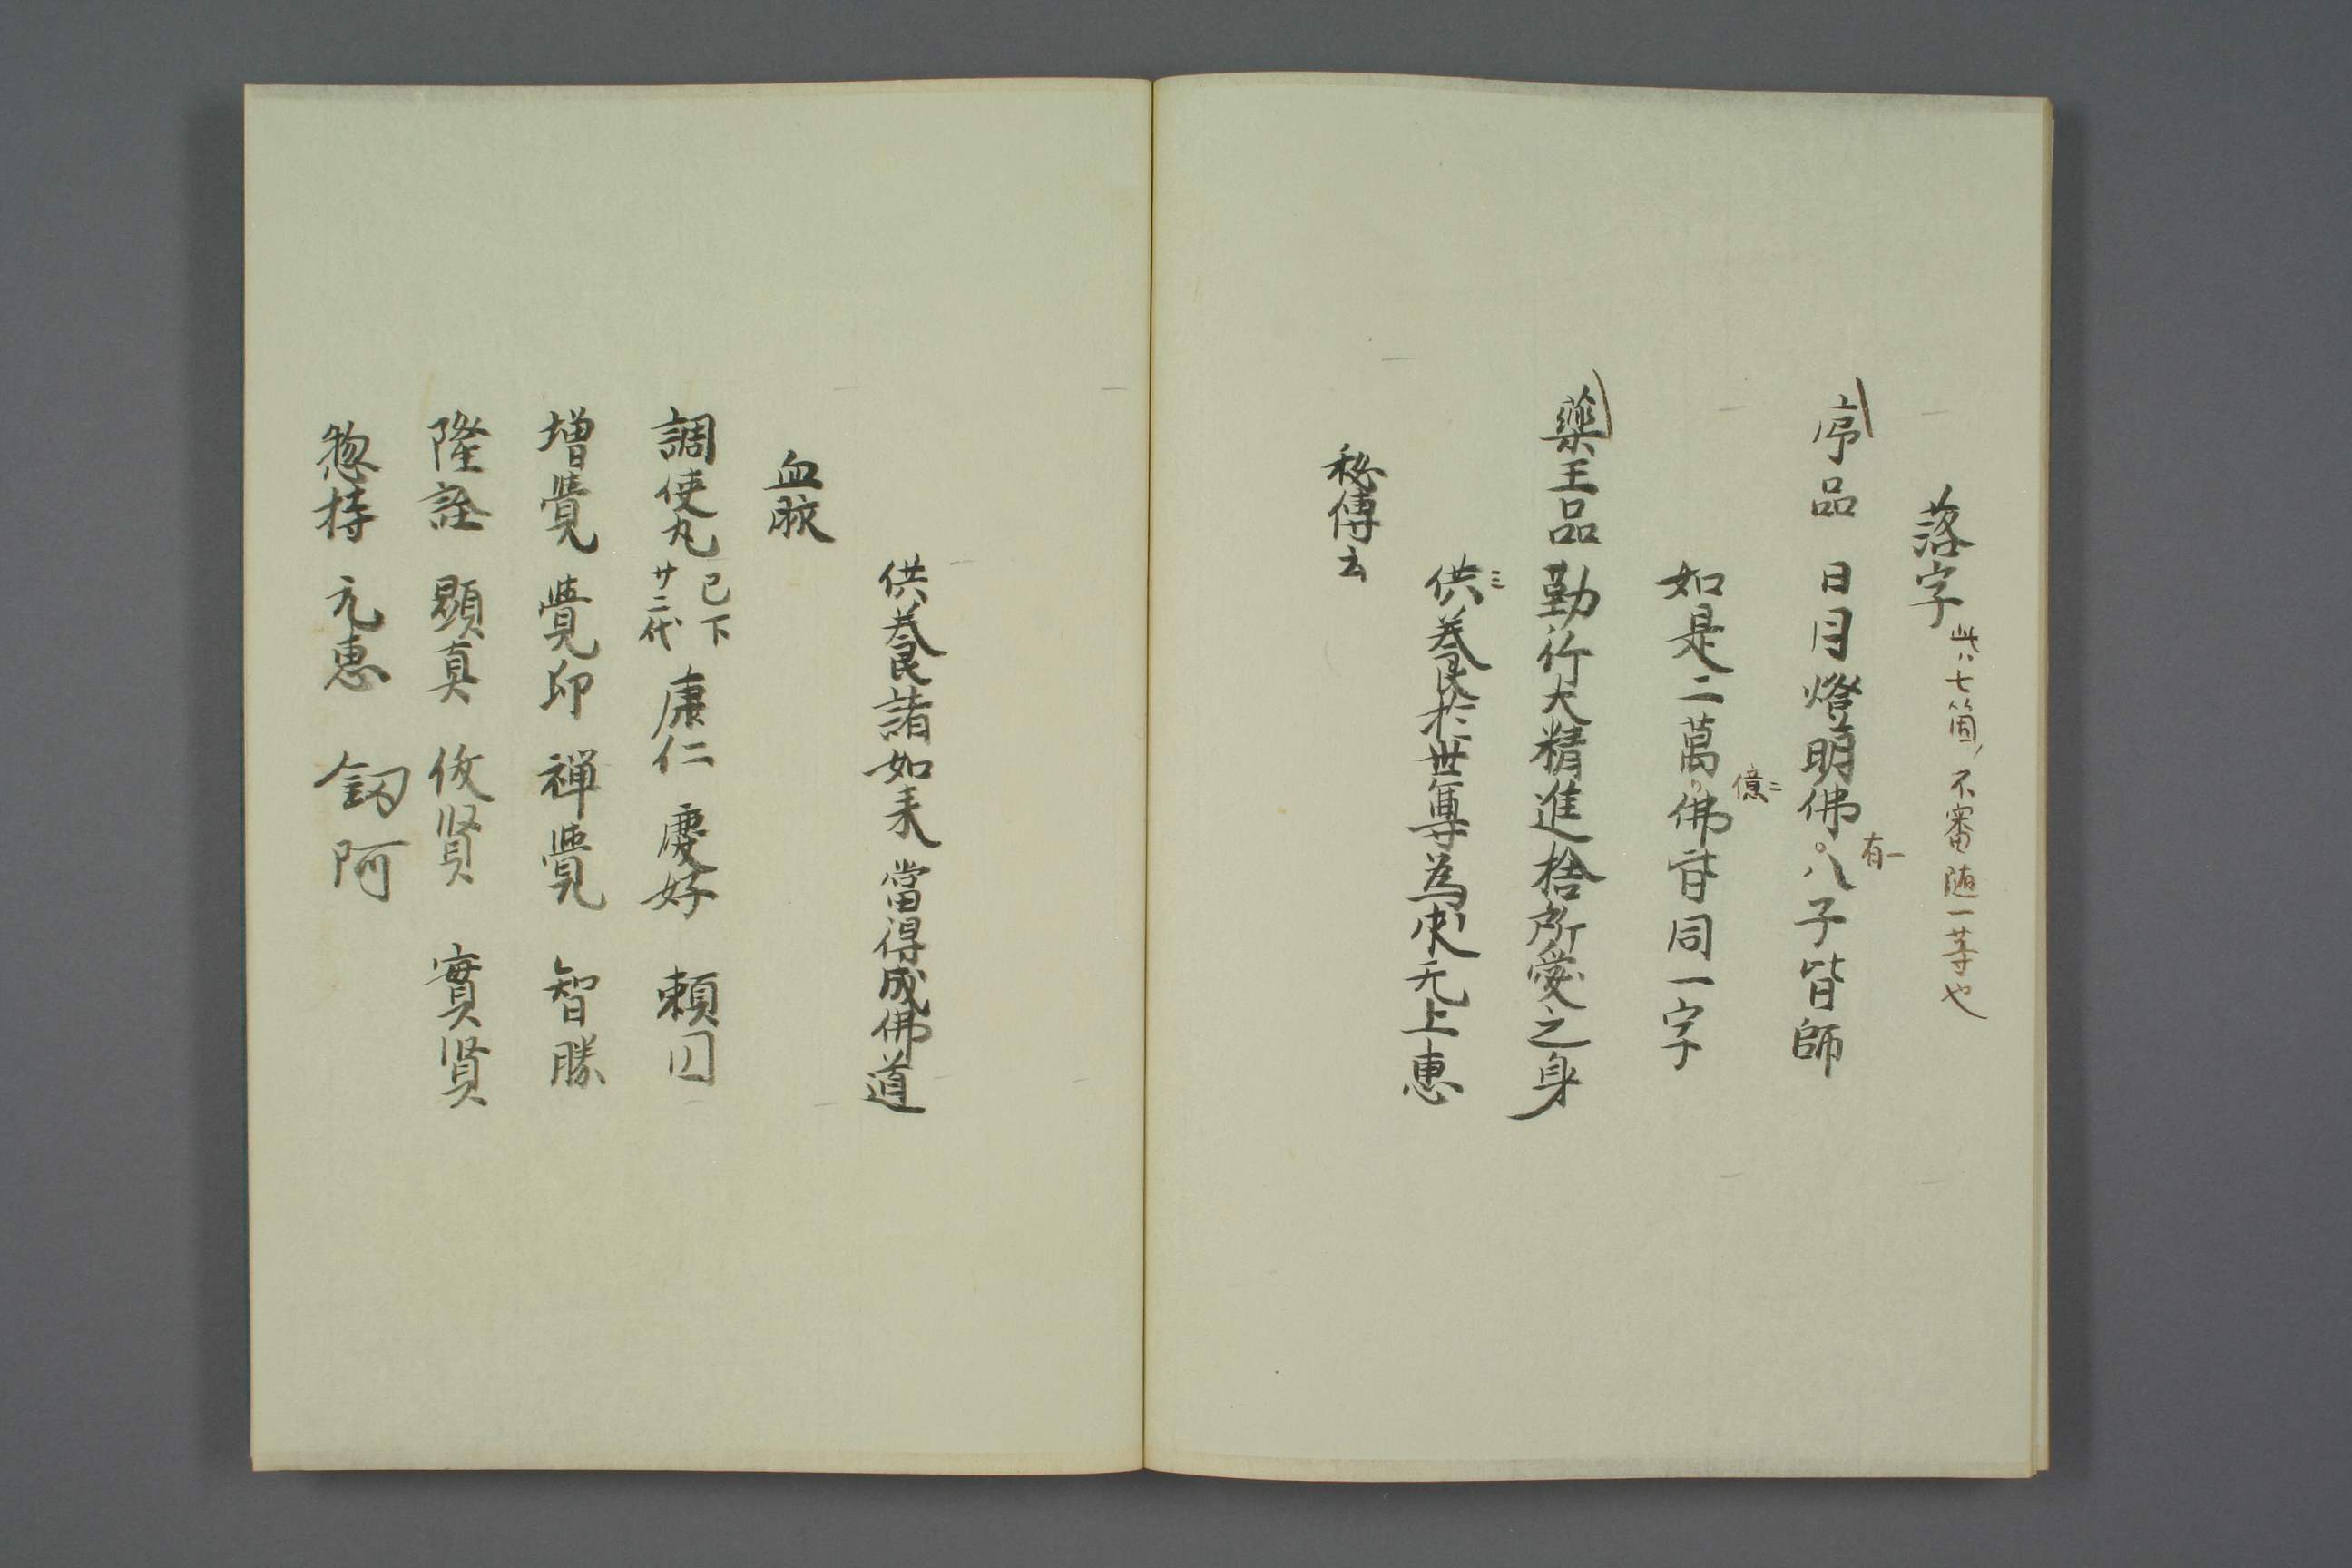 落字 此七箇ノ不審随一等也
序品 日月燈明佛。八子皆師
有一
如是二萬。佛皆同一字
億二
藥王品 勤行大精進捨所愛之身
供養於世尊為求无上恵
三
秘傳云
供養諸如来 當得成佛道
血脈
調使丸 已下廿二代 康仁 慶好 頼円
増覺 覺印 禅覺 智勝
隆詮 顕真 俊賢 實賢
惣持 元恵 釼阿